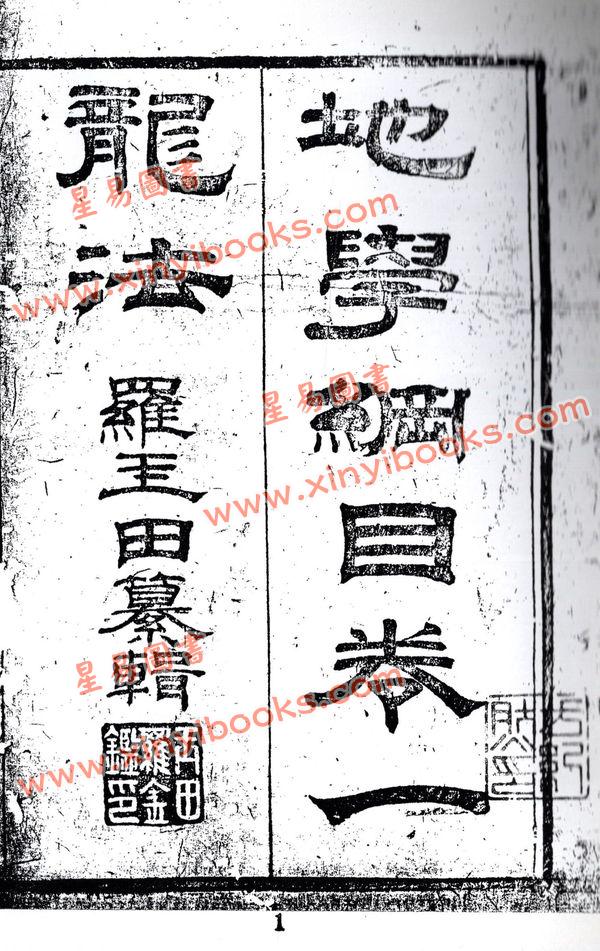 地學綱目卷一
龍法
羅玉田纂輯
玉田
羅金
鑑印
星易圖書
www.xinyibooks.com
星易圖書
www.xinyibooks.com
星易圖書
www.xinyibooks.com
1